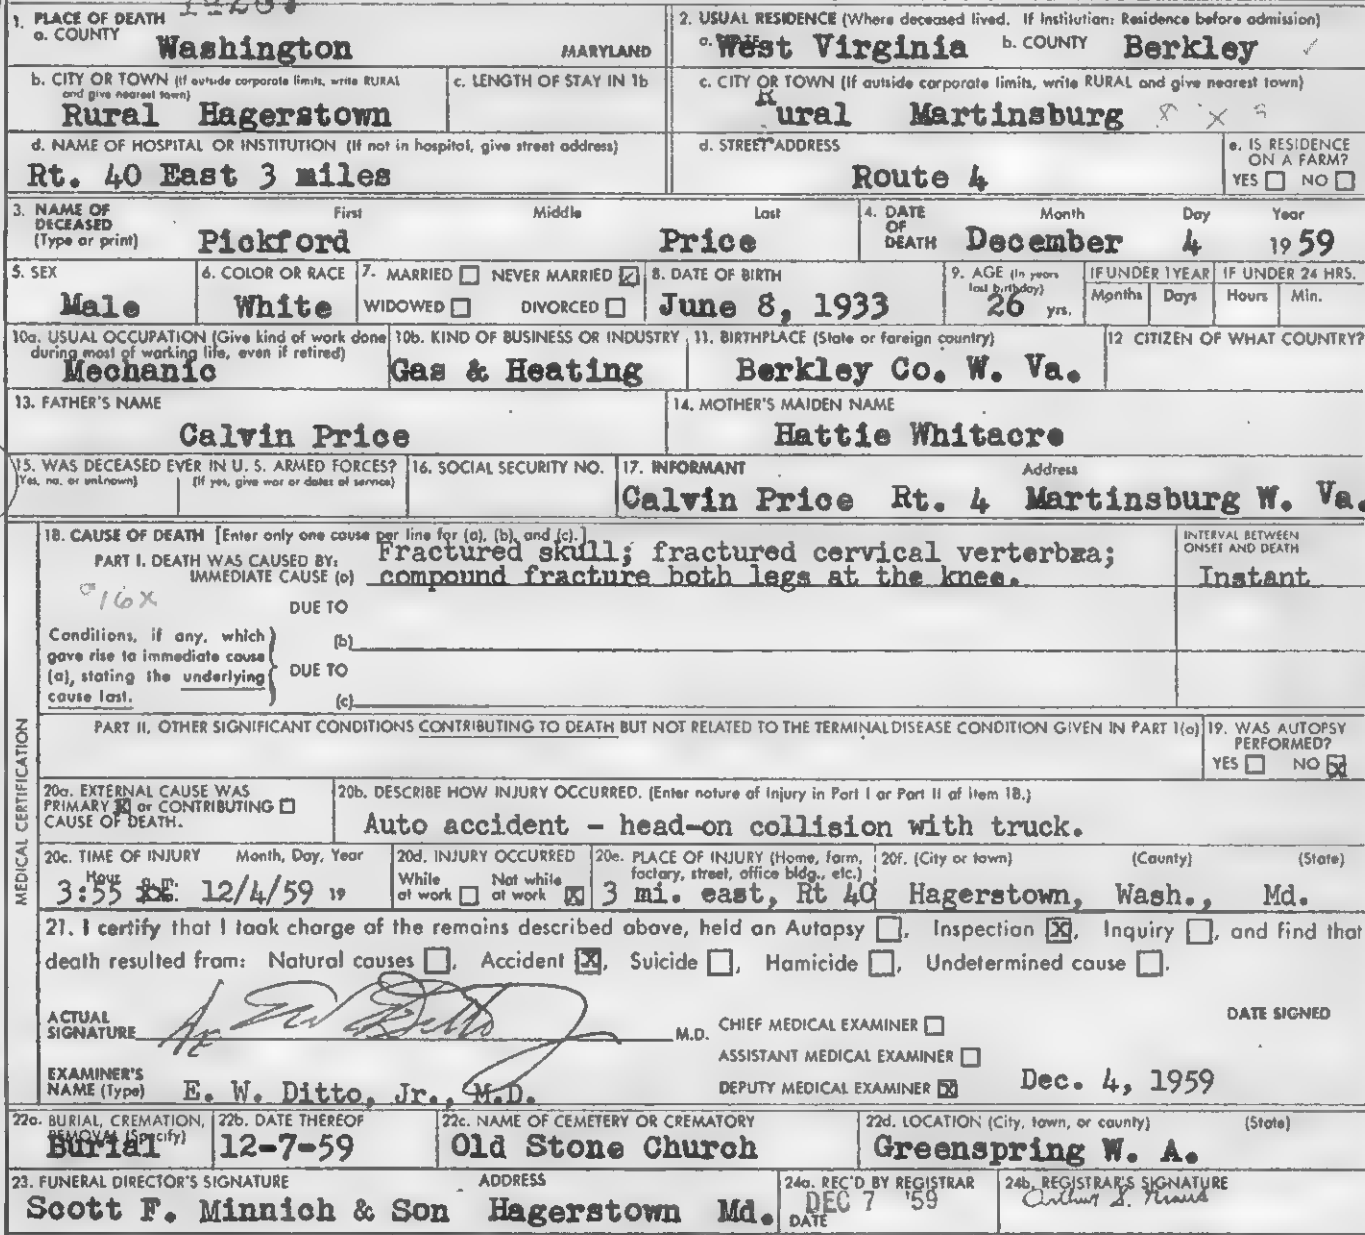 1. PLACE OF DEATH
a. COUNTY Washington MARYLAND
2. USUAL RESIDENCE (Where deceased lived. If Institution: Residence before admission)
a. West Virginia b. COUNTY Berkley ✓
b. CITY OR TOWN (If outside corporate limits, write RURAL and give nearest town)
Rural Hagerstown
c. LENGTH OF STAY IN 1b
c. CITY OR TOWN (If outside corporate limits, write RURAL and give nearest town)
Rural Martinsburg
d. NAME OF HOSPITAL OR INSTITUTION (If not in hospital, give street address)
Rt. 40 East 3 miles
d. STREET ADDRESS
Route 4
e. IS RESIDENCE ON A FARM?
YES ☐ NO ☐
3. NAME OF DECEASED (Type or print)
First Middle Last
Pickford Price
4. DATE OF DEATH
Month Day Year
December 4 1959
5. SEX
Male
6. COLOR OR RACE
White
7. MARRIED ☐ NEVER MARRIED ☑
WIDOWED ☐ DIVORCED ☐
8. DATE OF BIRTH
June 8, 1933
9. AGE (In years last birthday)
26 yrs.
IF UNDER 1 YEAR
Months Days
IF UNDER 24 HRS.
Hours Min.
10a. USUAL OCCUPATION (Give kind of work done during most of working life, even if retired)
Mechanic
10b. KIND OF BUSINESS OR INDUSTRY
Gas & Heating
11. BIRTHPLACE (State or foreign country)
Berkley Co. W. Va.
12 CITIZEN OF WHAT COUNTRY?
13. FATHER'S NAME
Calvin Price
14. MOTHER'S MAIDEN NAME
Hattie Whitacre
15. WAS DECEASED EVER IN U. S. ARMED FORCES?
(Yes, no, or unknown) (If yes, give war or dates of service)
16. SOCIAL SECURITY NO.
17. INFORMANT Address
Calvin Price Rt. 4 Martinsburg W. Va.
18. CAUSE OF DEATH [Enter only one cause per line for (a), (b), and (c).]
PART I. DEATH WAS CAUSED BY:
IMMEDIATE CAUSE (a)
Fractured skull; fractured cervical verterbxa;
compound fracture both legs at the knee.
INTERVAL BETWEEN ONSET AND DEATH
Instant
16X
DUE TO
Conditions, if any, which gave rise to immediate cause (a), stating the underlying cause last.
(b)
DUE TO
(c)
PART II. OTHER SIGNIFICANT CONDITIONS CONTRIBUTING TO DEATH BUT NOT RELATED TO THE TERMINAL DISEASE CONDITION GIVEN IN PART 1(a)
19. WAS AUTOPSY PERFORMED?
YES ☐ NO ☒
MEDICAL CERTIFICATION
20a. EXTERNAL CAUSE WAS
PRIMARY ☒ or CONTRIBUTING ☐
CAUSE OF DEATH.
20b. DESCRIBE HOW INJURY OCCURRED. (Enter nature of Injury in Part I or Part II of item 18.)
Auto accident - head-on collision with truck.
20c. TIME OF INJURY Month, Day, Year
Hour
3:55 12/4/59 19
20d. INJURY OCCURRED
While at work ☐ Not while at work ☒
20e. PLACE OF INJURY (Home, farm, factory, street, office bldg., etc.)
3 mi. east, Rt 40
20f. (City or town) (County) (State)
Hagerstown, Wash., Md.
21. I certify that I took charge of the remains described above, held an Autopsy ☐, Inspection ☒, Inquiry ☐, and find that
death resulted from: Natural causes ☐, Accident ☒, Suicide ☐, Homicide ☐, Undetermined cause ☐.
ACTUAL SIGNATURE E W Ditto Jr M.D.
CHIEF MEDICAL EXAMINER ☐
ASSISTANT MEDICAL EXAMINER ☐
DEPUTY MEDICAL EXAMINER ☒
DATE SIGNED
Dec. 4, 1959
EXAMINER'S NAME (Type) E. W. Ditto, Jr., M.D.
22a. BURIAL, CREMATION, REMOVAL (Specify)
Burial
22b. DATE THEREOF
12-7-59
22c. NAME OF CEMETERY OR CREMATORY
Old Stone Church
22d. LOCATION (City, town, or county) (State)
Greenspring W. A.
23. FUNERAL DIRECTOR'S SIGNATURE ADDRESS
Scott F. Minnich & Son Hagerstown Md.
24a. REC'D BY REGISTRAR
DATE DEC 7 '59
24b. REGISTRAR'S SIGNATURE
Arthur S.